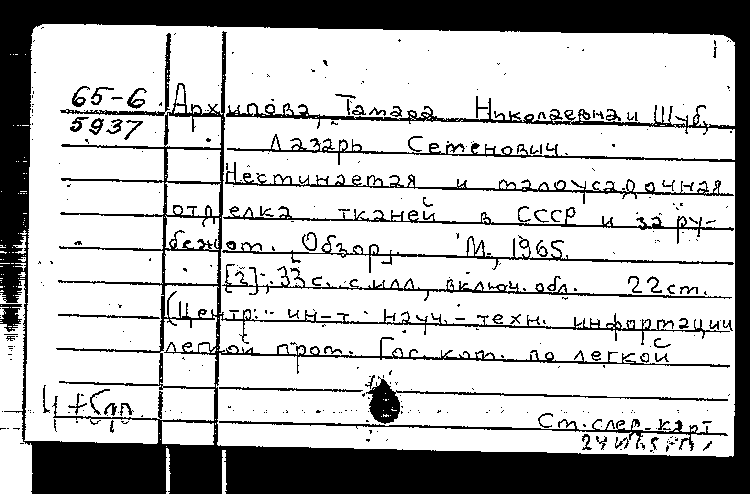 65-6
5937
Архипова, Тамара Николаевна и Шуб,
Лазарь Семенович.
Несминаемая и малоусадочная
отделка тканей в СССР и за ру-
бежом. [Обзор]. М., 1965.
[2], 33 с. с илл., включ. обл. 22 см.
(Центр. ин-т науч.-техн. информации
легкой пром. Гос. ком. по легкой
См. след. карт